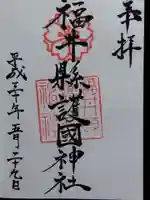 奉拝
福井縣護國神社
平成三十年五月二十九日